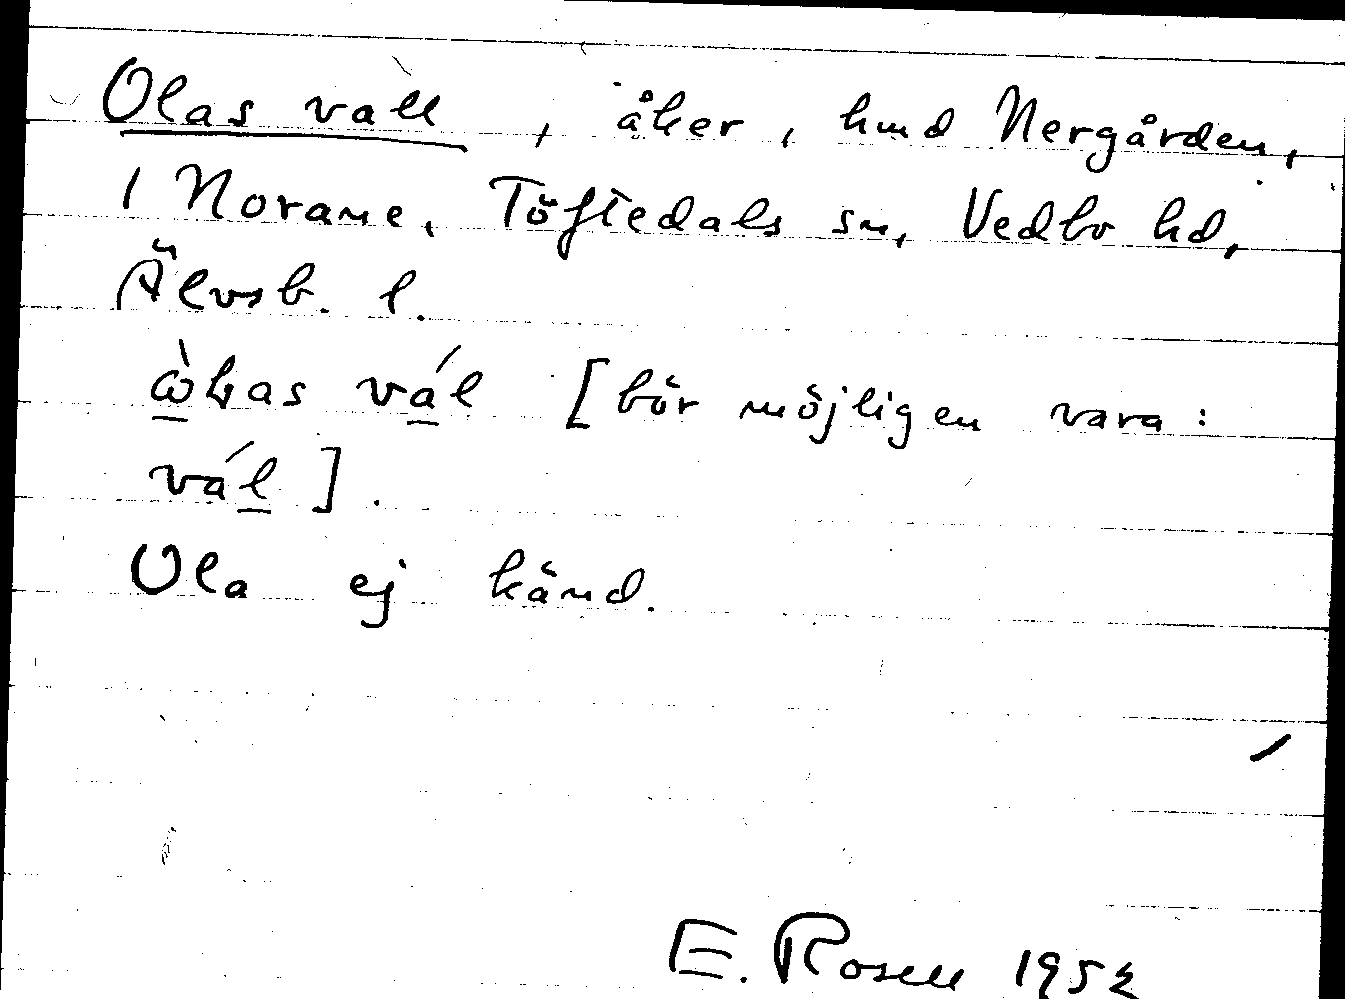 Olas vall, åker, hmd Nergården,
1 Norane, Töftedals sn, Vedbo hd,
Älvsb. l.
ὼLas vál [bör möjligen vara:
vál].
Ola ej känd.
E. Rosell 1952